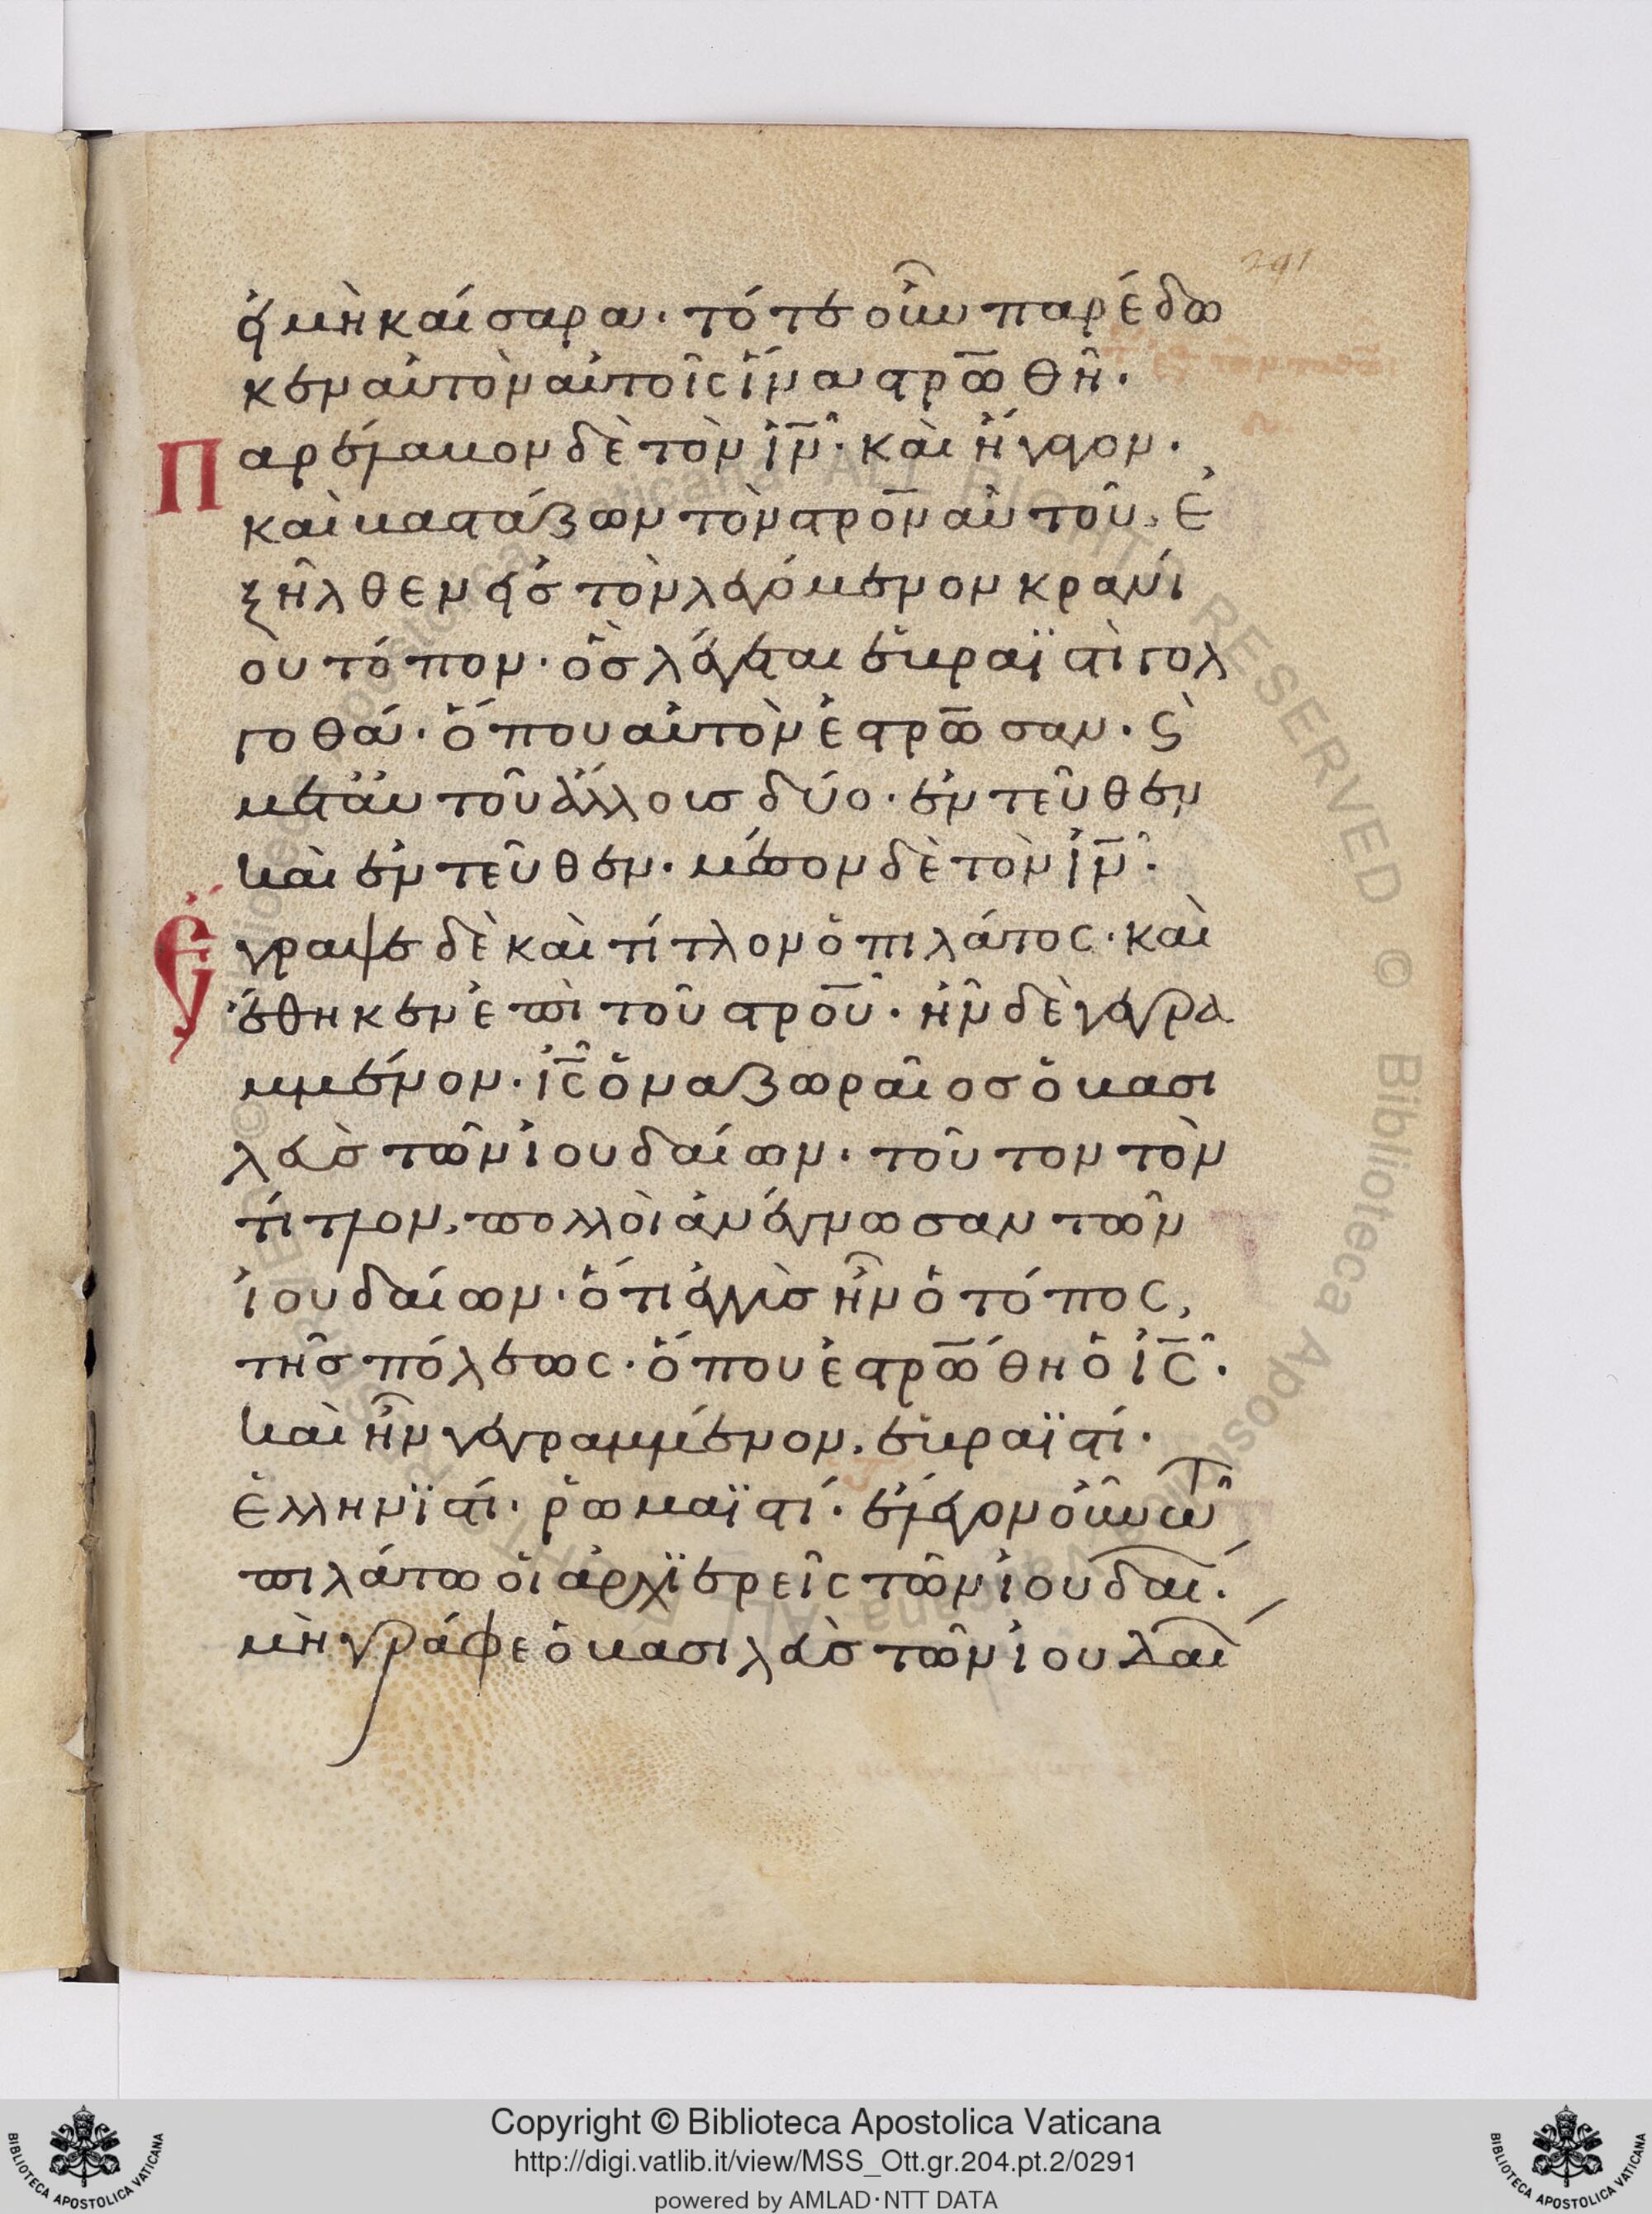 291
εἰ μὴ καίσαρα· τότε οὖν παρέδω
κεν αὐτὸν αὐτοῖς ἵνα στρ̅ωθῆ·
Παρέλαβον δὲ τὸν ι̅ν̅· καὶ ἤγαγον·
καὶ βαστάζων τὸν στρ̅ον αὐτοῦ, ἐ
ξῆλθεν εἰς τὸν λεγόμενον κρανί
ου τόπον· ὃς λέγεται ἑβραϊστὶ γολ
γοθά· ὅπου αὐτὸν ἐστρ̅ωσαν· ϛ̀
μετ' αὐτοῦ ἄλλους δύο· ἐντεῦθεν
καὶ ἐντεῦθεν· μέσον δὲ τὸν ι̅ν̅·
Ἔγραψε δὲ καὶ τίτλον ὁ πιλάτος· καὶ
ἔθηκεν ἐπὶ τοῦ στρ̅ου· ἦν δὲ γεγρα
μμένον· ι̅ς̅ ὁ ναζωραῖος ὁ βασι
λεὺς τῶν ἰουδαίων· τοῦτον τὸν
τίτλον, πολλοὶ ἀνέγνωσαν τῶν
ἰουδαίων· ὅτι ἐγγὺς ἦν ὁ τόπος,
τῆς πόλεως· ὅπου ἐστρ̅ώθη ὁ ι̅ς̅·
καὶ ἦν γεγραμμένον, ἑβραϊστί·
ἑλληνϊστί· ῥωμαϊστί· ἔλεγον οὖν τῶ
πιλάτω οἱ ἀρχϊερεῖς τῶν ἰουδαί·
μὴ γράφε ὁ βασιλεὺς τῶν ἰουδαί
BIBLIOTECA APOSTOLICA VATICANA
Copyright © Biblioteca Apostolica Vaticana
http://digi.vatlib.it/view/MSS_Ott.gr.204.pt.2/0291
powered by AMLAD·NTT DATA
BIBLIOTECA APOSTOLICA VATICANA